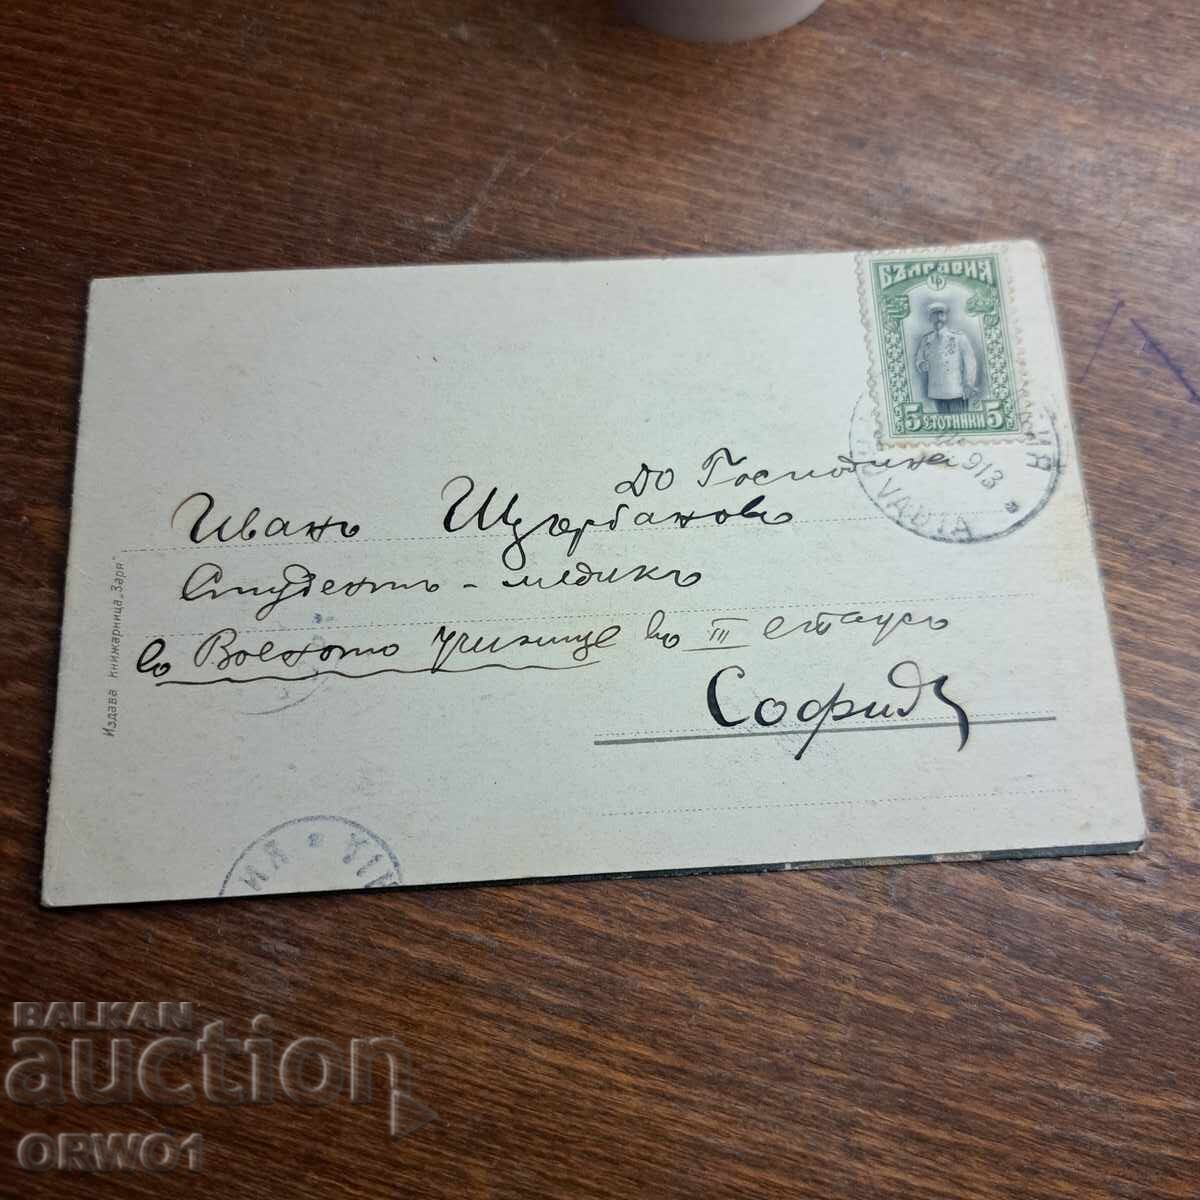 БЪЛГАРИЯ
5 СТОТИНКИ 5
913
VARNA
До Господина
Иванъ Щърбановъ
Студентъ - медикъ
въ Военното училище въ III етажъ
София
Издава книжарница „Заря“
BALKAN
auction
ORWO1